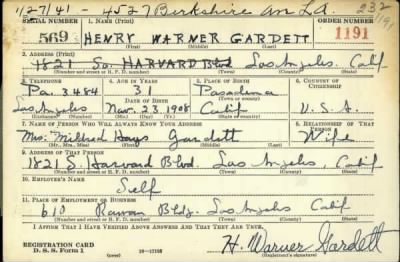 1/27/41 - 4527 Berkshire Av LA. 232
SERIAL NUMBER 1. NAME (Print) ORDER NUMBER
569 HENRY WARNER GARDETT 1191
(First) (Middle) (Last)
2. ADDRESS (Print)
1821 So. HARVARD Blvd Los Angeles. Calif
(Number and street or R. F. D. number) (Town) (County) (State)
3. TELEPHONE 4. AGE IN YEARS 5. PLACE OF BIRTH 6. COUNTRY OF CITIZENSHIP
Pa. 3484 31 Pasadena
DATE OF BIRTH (Town or county)
Los Angeles Nov. 23, 1908 Calif U.S.A.
(Exchange) (Number) (Mo.) (Day) (Yr.) (State or country)
7. NAME OF PERSON WHO WILL ALWAYS KNOW YOUR ADDRESS 8. RELATIONSHIP OF THAT PERSON
Mrs. Mildred Hays Gardett Wife
(Mr., Mrs., Miss) (First) (Middle) (Last)
9. ADDRESS OF THAT PERSON
1821 S. Harvard Blvd. Los Angeles, Calif
(Number and street or R. F. D. number) (Town) (County) (State)
10. EMPLOYER'S NAME
Self
11. PLACE OF EMPLOYMENT OR BUSINESS
610 Rowan Bldg. Los Angeles Calif
(Number and street or R. F. D. number) (Town) (County) (State)
I AFFIRM THAT I HAVE VERIFIED ABOVE ANSWERS AND THAT THEY ARE TRUE.
REGISTRATION CARD
D. S. S. Form 1
(over) 16-17105
H. Warner Gardett
(Registrant's signature)